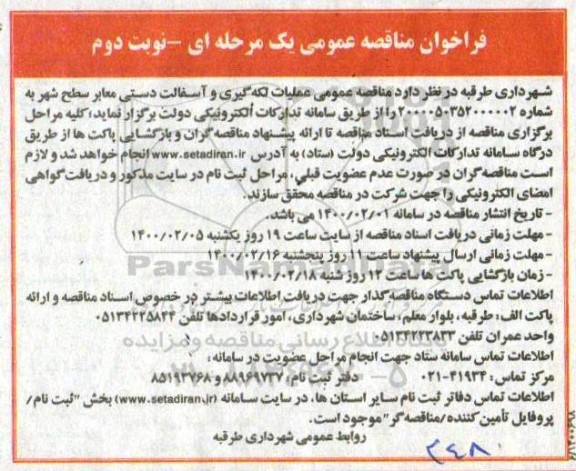 فراخوان مناقصه عمومی یک مرحله ای -نوبت دوم
شهرداری طرقبه در نظر دارد مناقصه عمومی عملیات لکه گیری و آسفالت دستی معابر سطح شهر به
شماره ۲۰۰۰۰۵۰۳۵۲۰۰۰۰۰۲ را از طریق سامانه تدارکات الکترونیکی دولت برگزار نماید؛ کلیه مراحل
برگزاری مناقصه از دریافت اسناد مناقصه تا ارائه پیشنهاد مناقصه گران و بازگشایی پاکت ها از طریق
درگاه سامانه تدارکات الکترونیکی دولت (ستاد) به آدرس www.setadiran.ir انجام خواهد شد و لازم
است مناقصه گران در صورت عدم عضویت قبلی، مراحل ثبت نام در سایت مذکور و دریافت گواهی
امضای الکترونیکی را جهت شرکت در مناقصه محقق سازند.
- تاریخ انتشار مناقصه در سامانه ۱۴۰۰/۰۲/۰۱ می باشد.
- مهلت زمانی دریافت اسناد مناقصه از سایت ساعت ۱۹ روز یکشنبه ۱۴۰۰/۰۲/۰۵
- مهلت زمانی ارسال پیشنهاد ساعت ۱۱ روز پنجشنبه ۱۴۰۰/۰۲/۱۶
- زمان بازگشایی پاکت ها ساعت ۱۲ روز شنبه ۱۴۰۰/۰۲/۱۸
اطلاعات تماس دستگاه مناقصه گذار جهت دریافت اطلاعات بیشتر در خصوص اسناد مناقصه و ارائه
پاکت الف: طرقبه، بلوار معلم، ساختمان شهرداری، امور قراردادها تلفن ۰۵۱۳۴۲۲۵۸۲۴
واحد عمران تلفن ۰۵۱۳۴۲۲۳۸۳۳
اطلاعات تماس سامانه ستاد جهت انجام مراحل عضویت در سامانه:
مرکز تماس: ۴۱۹۳۴-۰۲۱ دفتر ثبت نام: ۸۸۹۶۹۷۳۷ و ۸۵۱۹۳۷۶۸
اطلاعات تماس دفاتر ثبت نام سایر استان ها، در سایت سامانه (www.setadiran.ir) بخش "ثبت نام/
پروفایل تأمین کننده/مناقصه گر" موجود است.
روابط عمومی شهرداری طرقبه
۳۴۸